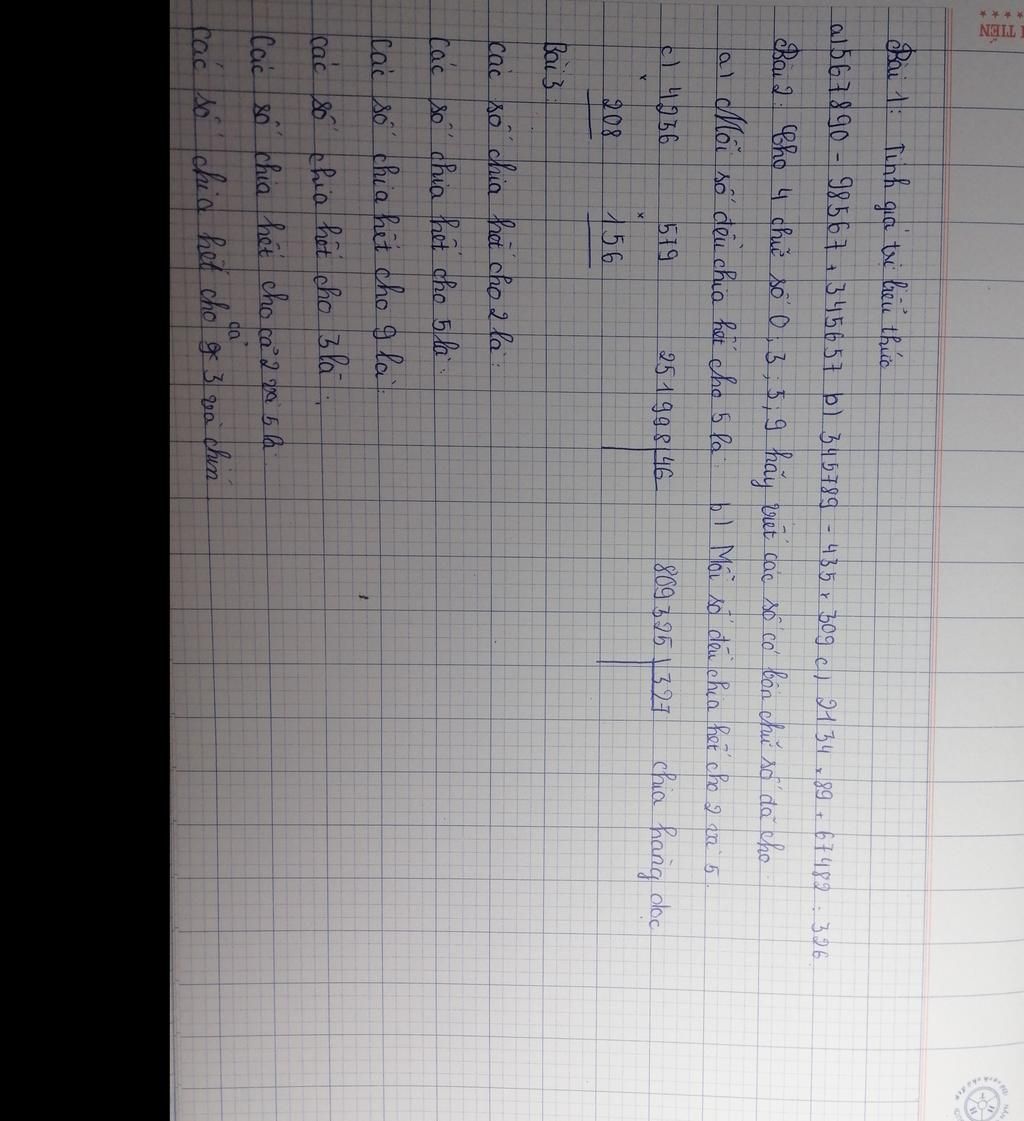 TIẾN
Bài 1: Tính giá trị biểu thức
a) 567890 - 98567 + 345657 b) 345789 - 435 x 309 c) 2134 x 89 + 67482 : 326
Bài 2: Cho 4 chữ số 0, 3, 5, 9 hãy viết các số có bốn chữ số đã cho
a) Mỗi số đều chia hết cho 5 là: b) Mỗi số đều chia hết cho 2 và 5.
c) 4236 579 251998 46 809325 327 chia hàng dọc
x 208 x 156
Bài 3:
các số chia hết cho 2 là:
Các số chia hết cho 5 là:
Các số chia hết cho 9 là:
các số chia hết cho 3 là:
Các số chia hết cho cả 2 và 5 là:
Các số chia hết cho cả 3 và chín